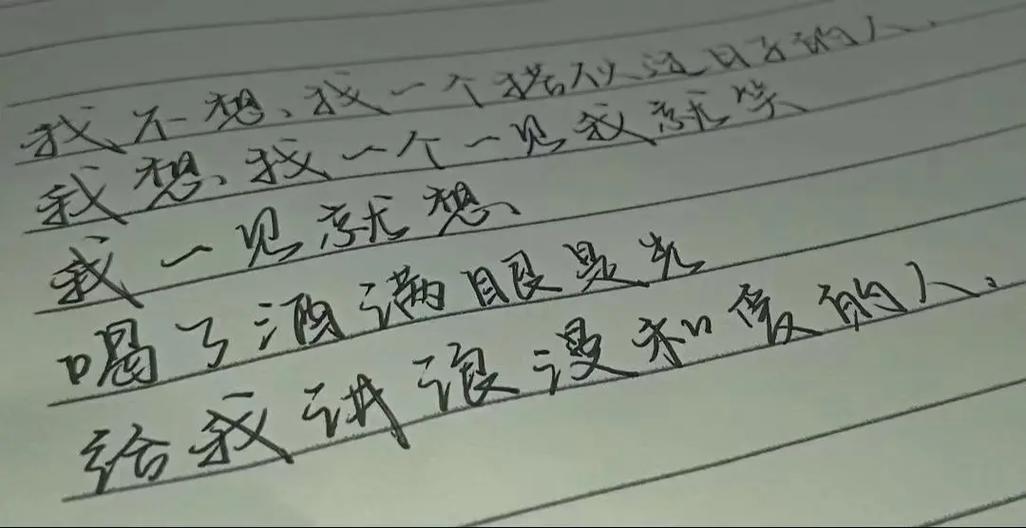 我不想、找一个搭伙过日子的人、
我想、找一个一见我就笑
我一见就想、
喝了酒满眼是光
给我讲浪漫和爱的人。